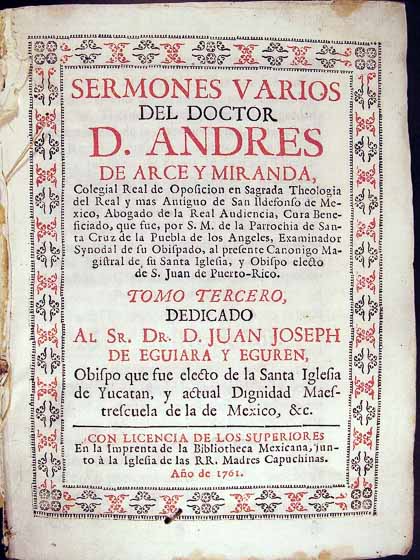 SERMONES VARIOS
DEL DOCTOR
D. ANDRES
DE ARCE Y MIRANDA,
Colegial Real de Oposicion en Sagrada Theologia
del Real y mas Antiguo de San Ildefonso de Me-
xico, Abogado de la Real Audiencia, Cura Bene-
ficiado, que fue, por S. M. de la Parrochia de San-
ta Cruz de la Puebla de los Angeles, Examinador
Synodal de su Obispado, al presente Canonigo Ma-
gistral de su Santa Iglesia, y Obispo electo
de S. Juan de Puerto-Rico.
TOMO TERCERO,
DEDICADO
AL SR. DR. D. JUAN JOSEPH
DE EGUIARA Y EGUREN,
Obispo que fue electo de la Santa Iglesia
de Yucatan, y actual Dignidad Maes-
trescuela de la de Mexico, &c.
CON LICENCIA DE LOS SUPERIORES
En la Imprenta de la Bibliotheca Mexicana, jun-
to à la Iglesia de las RR. Madres Capuchinas.
Año de 1761.